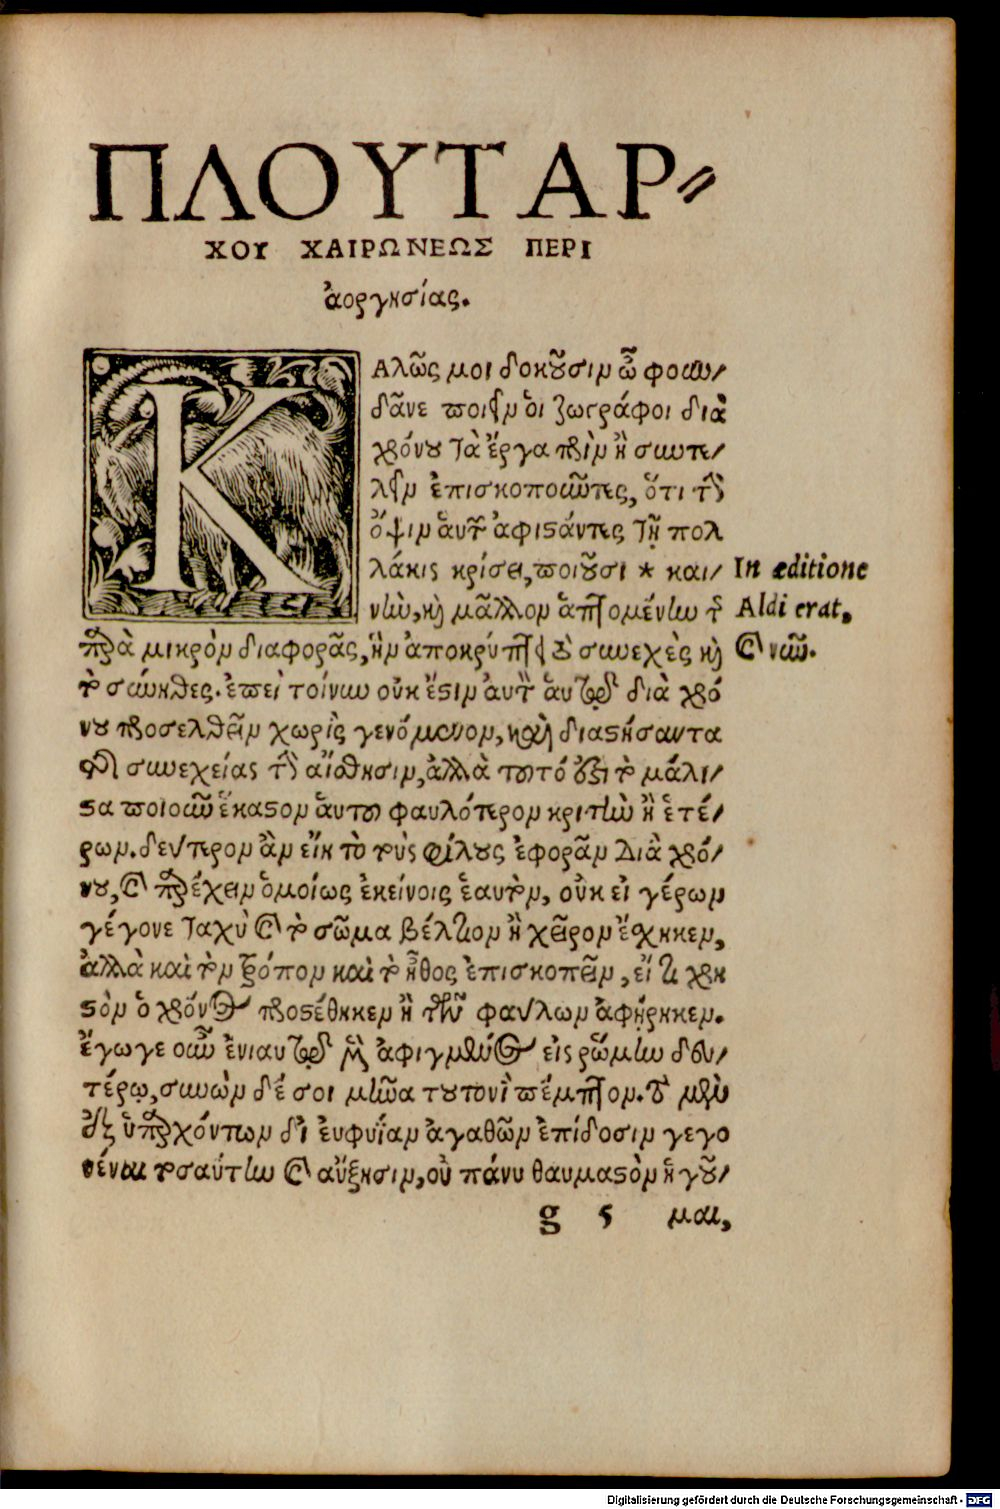 ΠΛΟΥΤΑΡ⸗
ΧΟΥ ΧΑΙΡΩΝΕΩΣ ΠΕΡΙ
ἀοργησίας.
ΚΑλῶς μοι δοκοῦσιν ὦ φουν/
δᾶνε ποιεῖν ὁι ζωγράφοι διὰ
χρόνου τὰ ἔργα πρὶν ἢ συντε/
λεῖν ἐπισκοποῦντες, ὅτι τὴν
ὄψιν ἁυτῶν ἀφιστάντες τῇ πολ
λάκις κρίσει, ποιοῦσι * και/
νὴν, καὶ μᾶλλον ἁπτομένην τῆς
παρὰ μικρὸν διαφορᾶς, ἣν ἀποκρύπτει τὸ συνεχὲς καὶ
τὸ σύνηθες. ἐπεὶ τοίνυν οὐκ ἔστιν αὐτὸν ἁυτῷ διὰ χρό
νου προσελθεῖν χωρὶς γενόμενον, καὶ διαστήσαντα
τῆς συνεχείας τὴν αἴσθησιν, ἀλλὰ τοῦτό ἐστι τὸ μάλι/
στα ποιοῦν ἕκαστον ἁυτοῦ φαυλότερον κριτὴν ἢ ἑτέ/
ρων. δεύτερον ἂν εἴη τὸ τοὺς φίλους ἐφορᾶν διὰ χρό/
νου, καὶ παρέχειν ὁμοίως ἐκείνοις ἑαυτὸν, οὐκ εἰ γέρων
γέγονε ταχὺ καὶ τὸ σῶμα βέλτιον ἢ χεῖρον ἔσχηκεν,
ἀλλὰ καὶ τὸν τρόπον καὶ τὸ ἦθος ἐπισκοπεῖν, εἴ τι χρη
στὸν ὁ χρόνος προστέθηκεν ἢ τῶν φαύλων ἀφῄρηκεν.
ἔγωγε οὖν ἐνιαυτῷ μὲν ἀφιγμένος εἰς ῥώμην δευ/
τέρῳ, συνὼν δέ σοι μῆνα τουτονὶ πέμπτον. τὸ μὲν
ἐξ ὑπαρχόντων δι᾽ ἐυφυΐαν ἀγαθῶν ἐπίδοσιν γεγο
νέναι τοσαύτην καὶ αὔξησιν, οὐ πάνυ θαυμαστὸν ἡγοῦ/
g 5 μαι,
In æditione
Aldi erat,
καὶ νῦν.
Digitalisierung gefördert durch die Deutsche Forschungsgemeinschaft - DFG